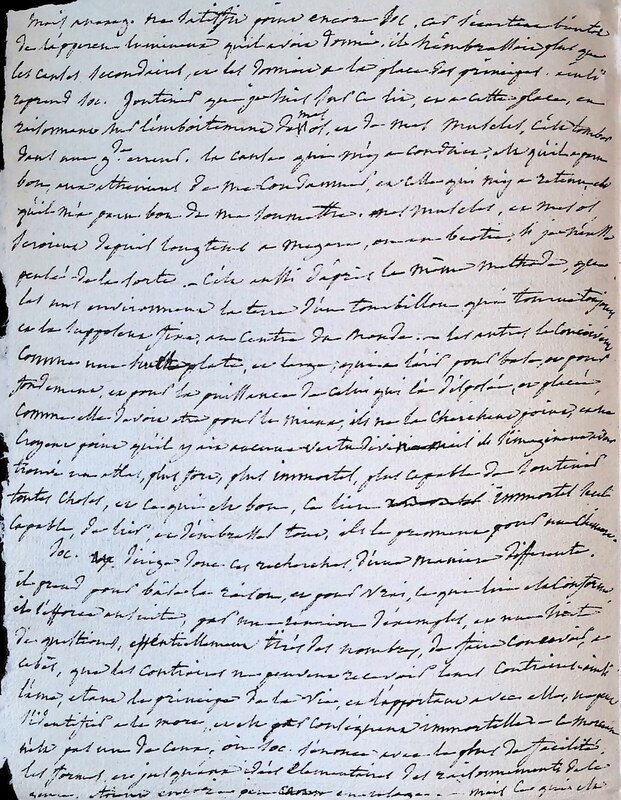 mais anaxag. ne satisfit point encore Soc. car s'écartant bientôt
de l'apperçu lumineux qu'il avoit donné, il n'embrassoit plus que
les causes secondaires, et les donnoit a la place des principes. ainsi
reprend Soc. soutenir que je suis sur ce lit, et a cette place, en
raisonnant sur l'emboitement de mes os, et de mes muscles, c'est tomber
dans une gde erreur. la cause qui m'y a conduit, est qu'il a paru
bon, aux atheniens de me condamner, et celle qui m'y a retenu, est
qu'il m'a paru bon de me soumettre. mes muscles, et mes os
seroient depuis longtems a megare, ou en beotie, si j'eusse
pensé de la sorte. c'est aussi d'après la même methode, que
les uns environnent la terre d'un tourbillon qui tourne toujours
et la supposent fixe, au centre du monde. les autres la conçoivent
comme une plate, et large, qui a l'air pour base, et pour
fondement, et pour la puissance de celui qui l'a disposé, et placée,
comme elle devoit etre pour le mieux, ils ne la cherchent point, et ne
croyent point qu'il y ait aucune vertu divine mais ils s'imaginent
trouver un atlas, plus fort, plus immortel, plus capable de soutenir
toutes choses, et ce qui est bon, ce lien immortel seul
capable, de lier et d'embrasser tout, ils le prennent pour une chimere.
Soc. dirige donc ces recherches, d'une maniere differente.
il prend pour base la raison, et pour vrai, ce qui lui est conforme
il s'efforce ensuite, par une reunion d'exemples, et une suite
de questions, essentiellement tirés des nombres, de faire concevoir, a
cebès, que les contraires ne peuvent recevoir leurs contraires ainsi
l'ame, etant le principe de la vie, et l'apportant avec elle, ne peut
s'identifier a la mort, et est par consequent immortelle. ce morceau
n'est pas un de ceux, où Soc. s'énonce avec le plus de facilité
les formes, et jusqu'aux idées elementaires des raisonnements de ce
genre, etoient encore un peu mais ce qui est